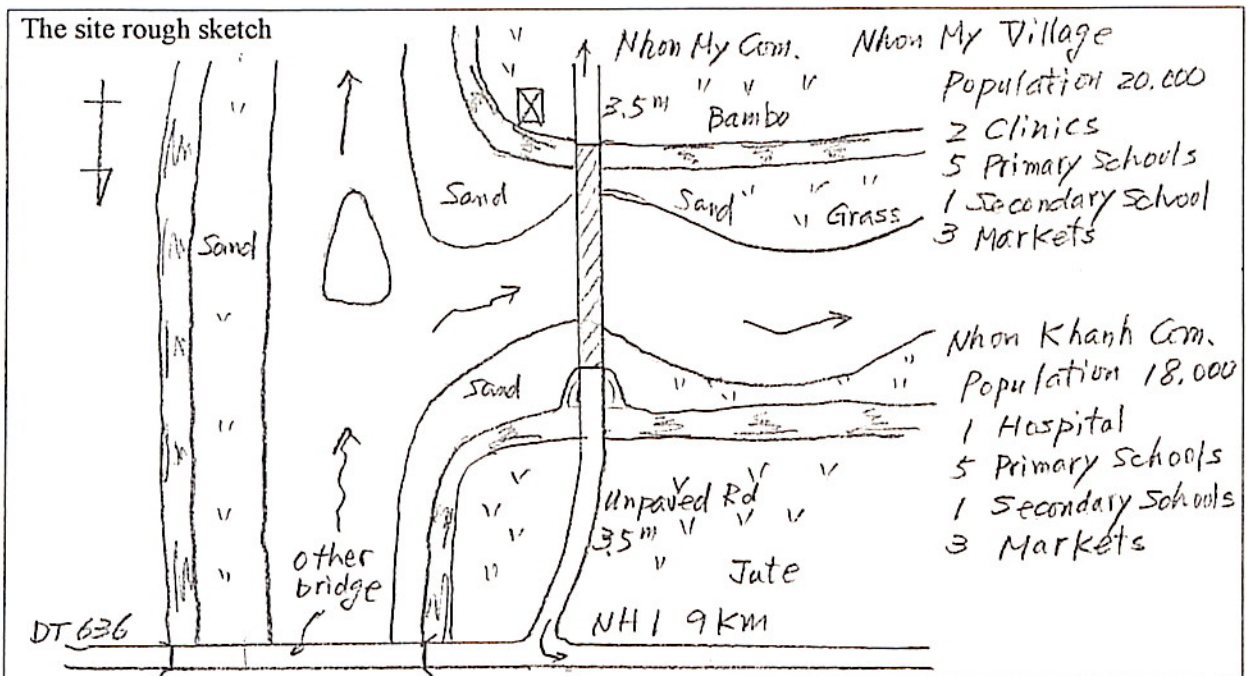 The site rough sketch
Nhon My Com.
Nhon My Village
Population 20.000
2 Clinics
5 Primary Schools
1 Secondary School
3 Markets
3.5 m
Bambo
Sand
Sand
Grass
Sand
Sand
Nhon Khanh Com.
Population 18.000
1 Hospital
5 Primary Schools
1 Secondary Schools
3 Markets
Unpaved Rd
3.5 m
Jute
other
bridge
DT 636
NH 1 9 km